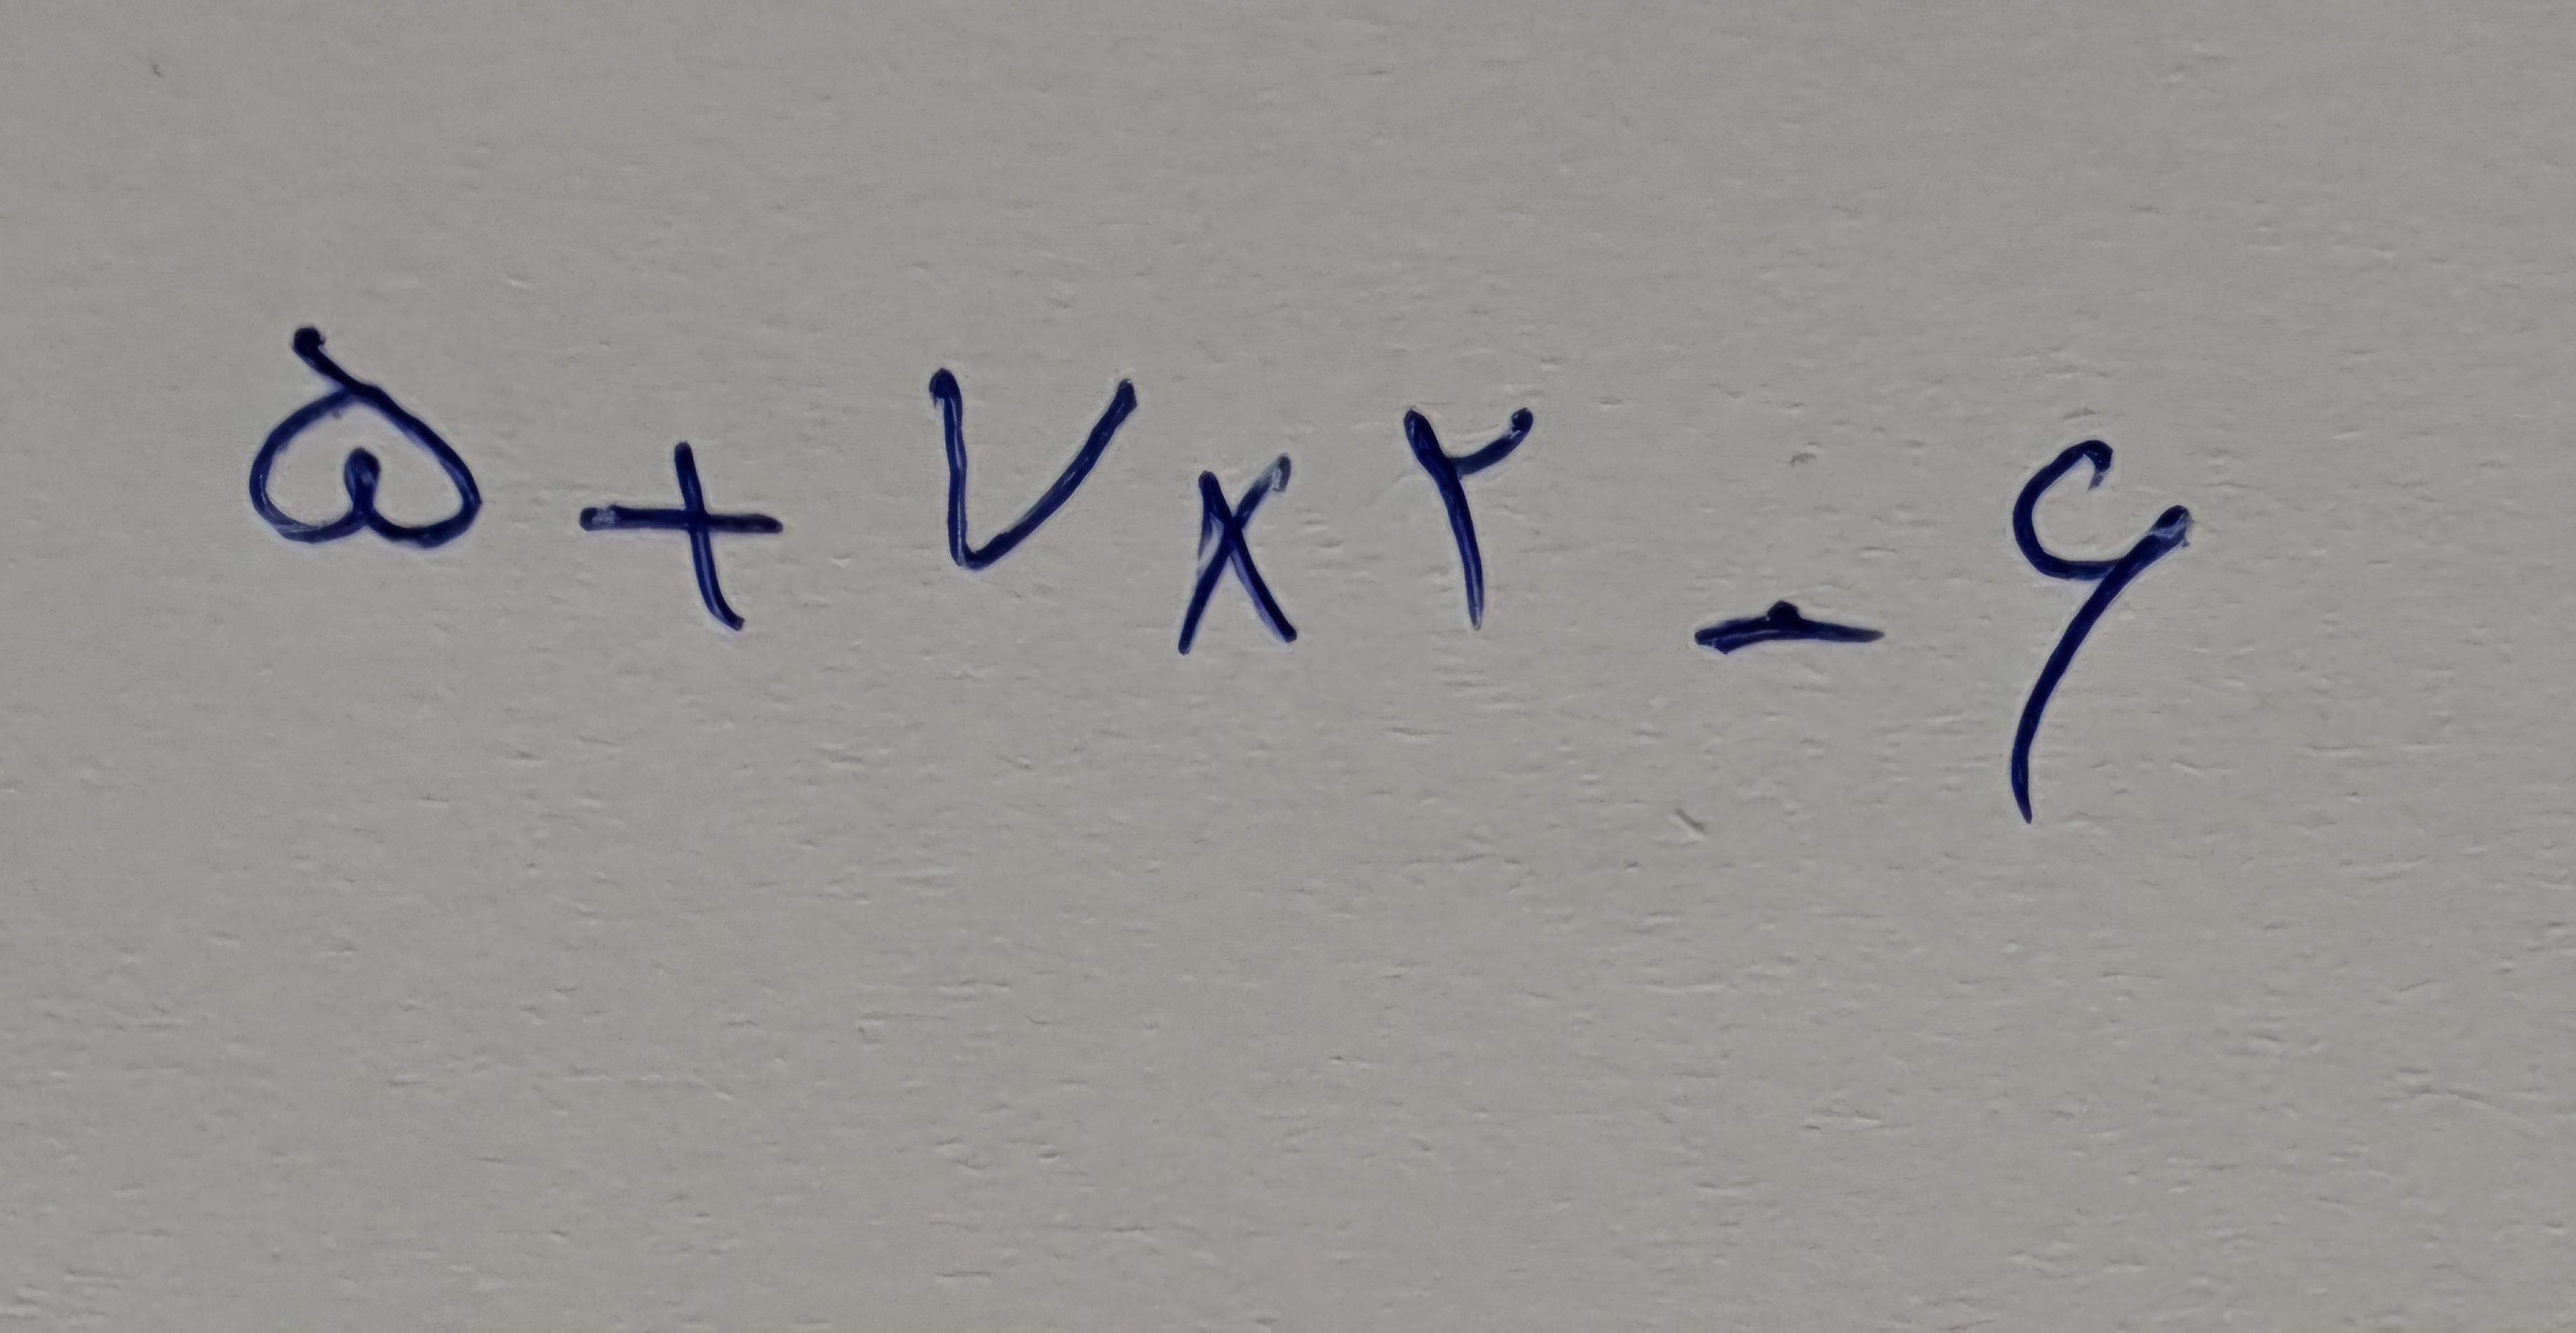 ۵ + ۷ × ۲ - ۶